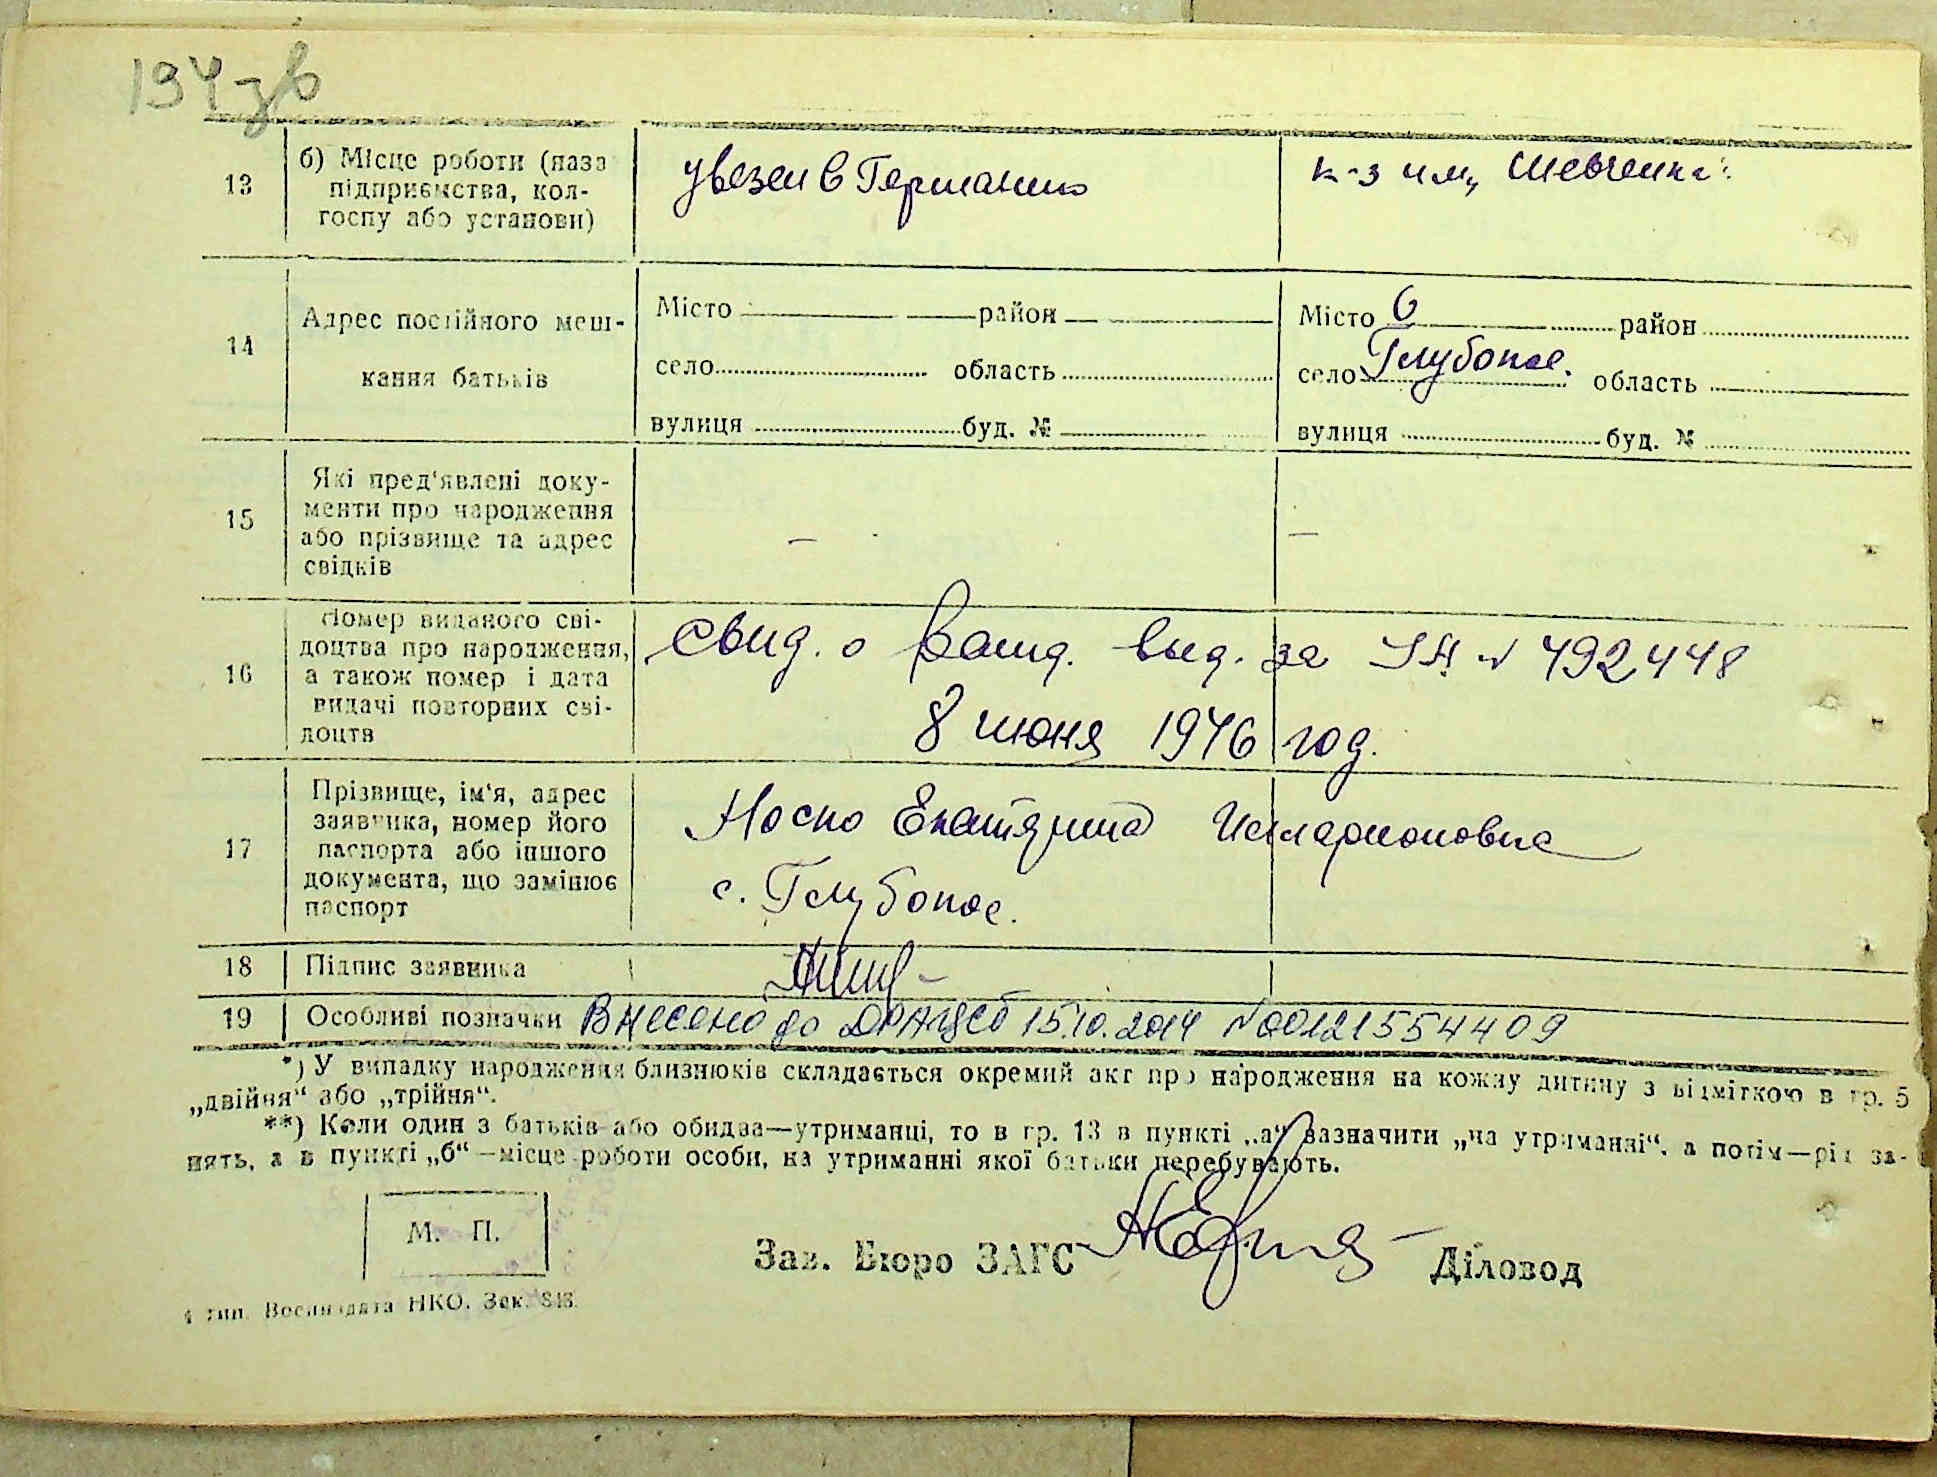 194 зв
13
б) Місце роботи (назва
підприємства, кол-
госпу або установи)
увезен в Германию
к-з им. Шевченка
14
Адрес постійного меш-
кання батьків
Місто район
село область
вулиця буд. №
Місто с район
село Глубокое. область
вулиця буд. №
15
Які пред'явлені доку-
менти про народження
або прізвище та адрес
свідків
–
–
16
Номер виданого сві-
доцтва про народження,
а також номер і дата
видачі повторних сві-
доцтв
свид. о рожд. выд. за № 492448
8 июня 1946 год.
17
Прізвище, ім'я, адрес
заявника, номер його
паспорта або іншого
документа, що замінює
паспорт
Носко Екатерина Илларионовна
с. Глубокое.
18
Підпис заявника
19
Особливі позначки
Внесено до ДРАЦС 15.10.2014 №00121554409
*) У випадку народження близнюків складається окремий акт про народження на кожну дитину з відміткою в гр. 5
„двійня“ або „трійня“.
**) Коли один з батьків або обидва—утриманці, то в гр. 13 в пункті „а“ зазначити „на утриманні“, а потім—рід за-
нять, а в пункті „б“—місце роботи особи, на утриманні якої батьки перебувають.
М. П.
Зав. Бюро ЗАГС
Діловод
4 тип. Воениздата НКО. Зак. 848.